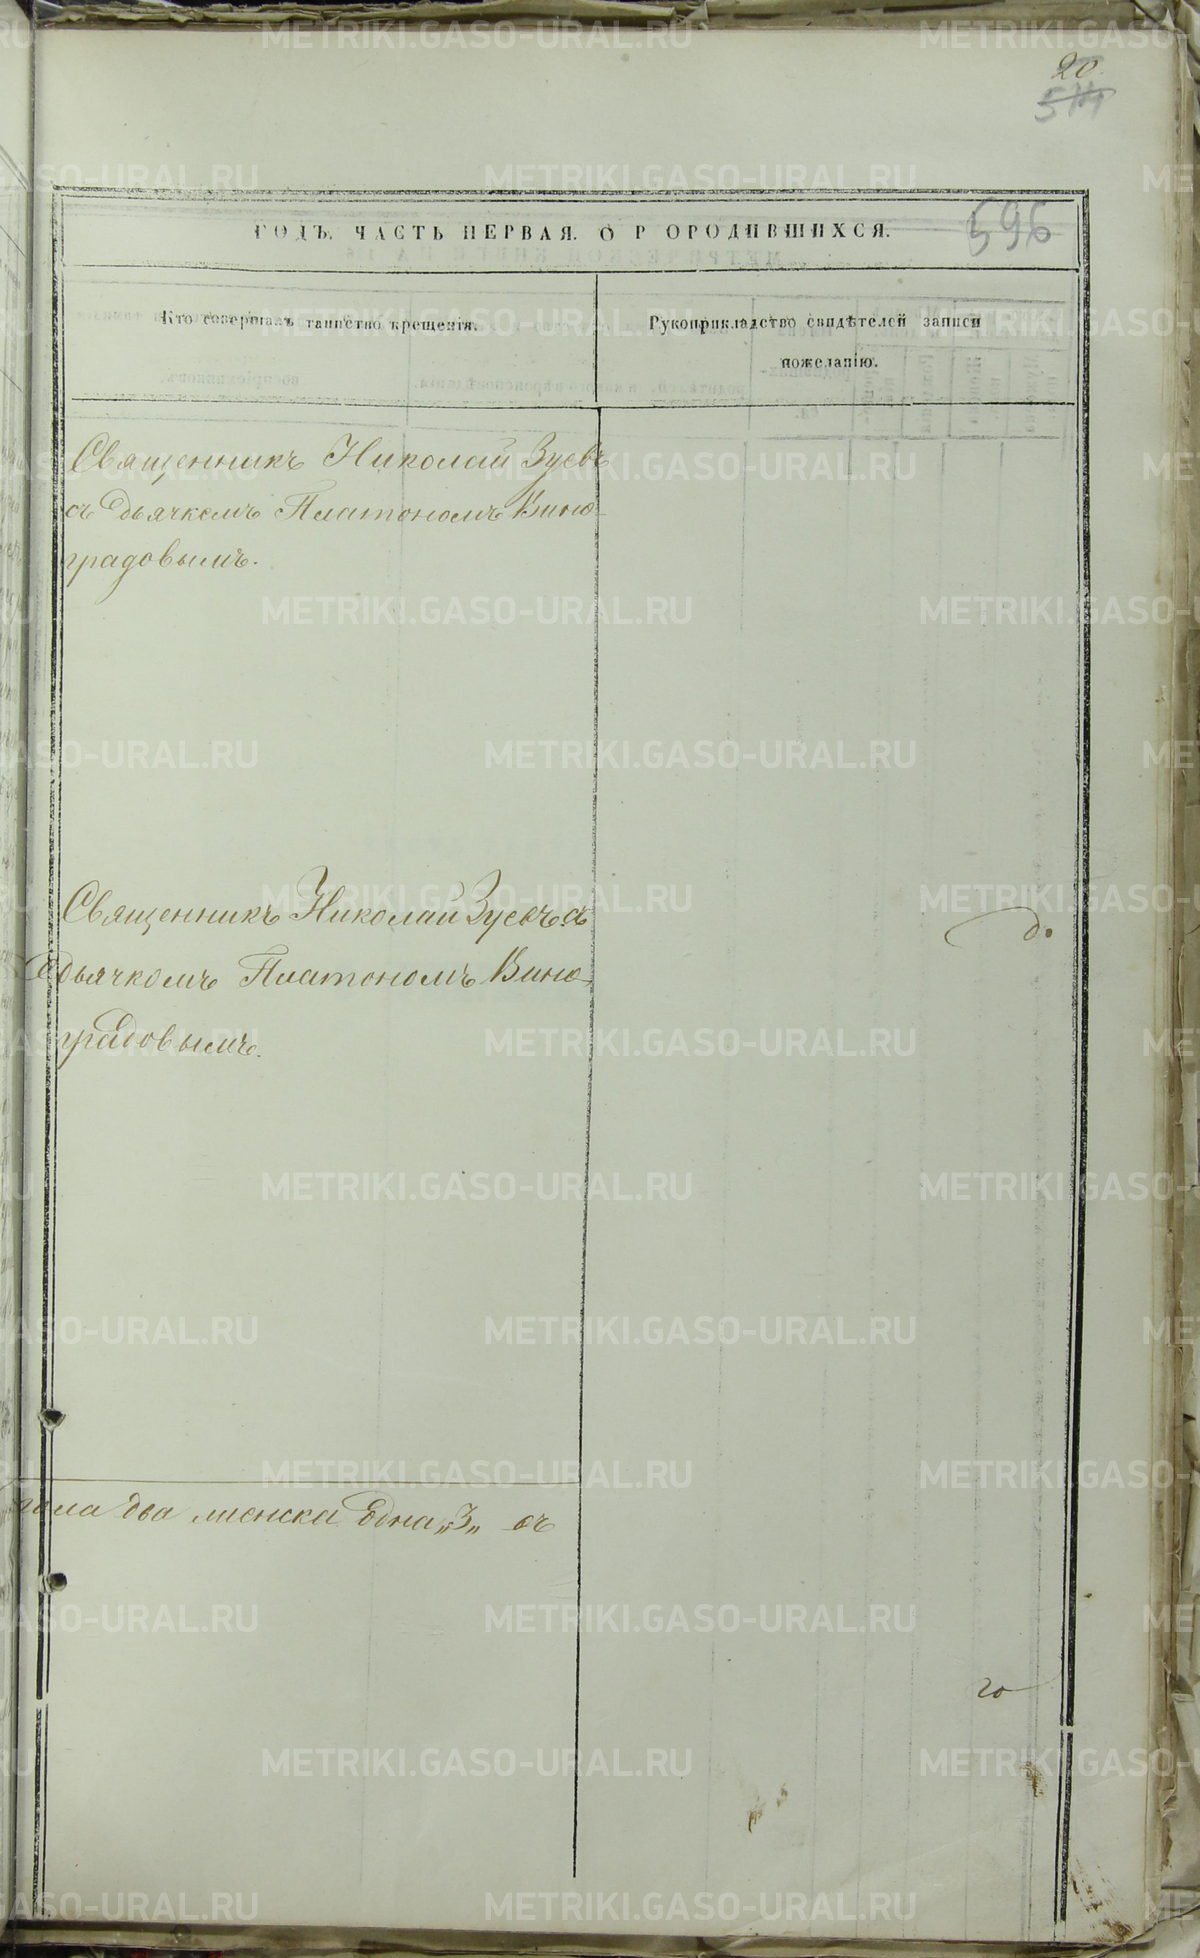 20
511
596
ГОДЪ. ЧАСТЬ ПЕРВАЯ. О Р ОРОДИВШИХСЯ.
Кто совершалъ таинство крещенія.
Рукоприкладство свидѣтелей записи
пожеланію.
Священникъ Николай Зуевъ
съ дьячкомъ Платономъ Вино-
градовымъ.
Священникъ Николай Зуевъ съ
дьячкомъ Платономъ Вино-
градовымъ.
до
пола два женска одна „3„ съ
го
METRIKI.GASO-URAL.RU